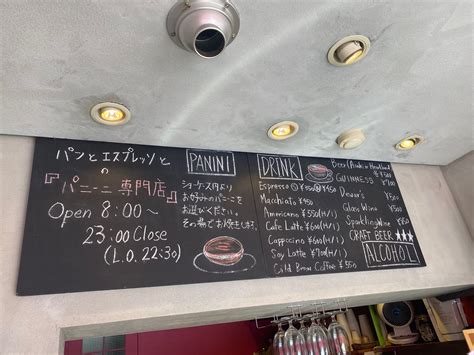 パンとエスプレッソと
の
『パニーニ専門店』
Open 8:00〜
23:00 Close
(L.O. 22:30)
PANINI
ショーケース内より
お好みのパニーニを
お選びください。
その場でお焼きします。
DRINK
Espresso
Macchiato ¥450
Americano ¥550(H/I)
Cafe Latte ¥600(H/I)
Cappuccino ¥600(H/I)
Soy Latte ¥700(H/I)
Cold Brew Coffee ¥550
Beer
GUINNESS ¥700
Dewar's
Glass Wine
Sparkling Wine
CRAFT BEER ★★★
ALCOHOL